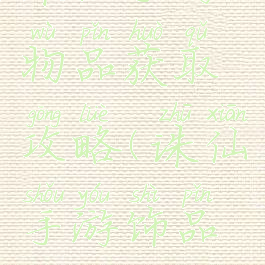 wù pǐn huò qǔ
物品获取
gōng lüè zhū xiān
攻略(诛仙
shǒu yóu shì pǐn
手游饰品